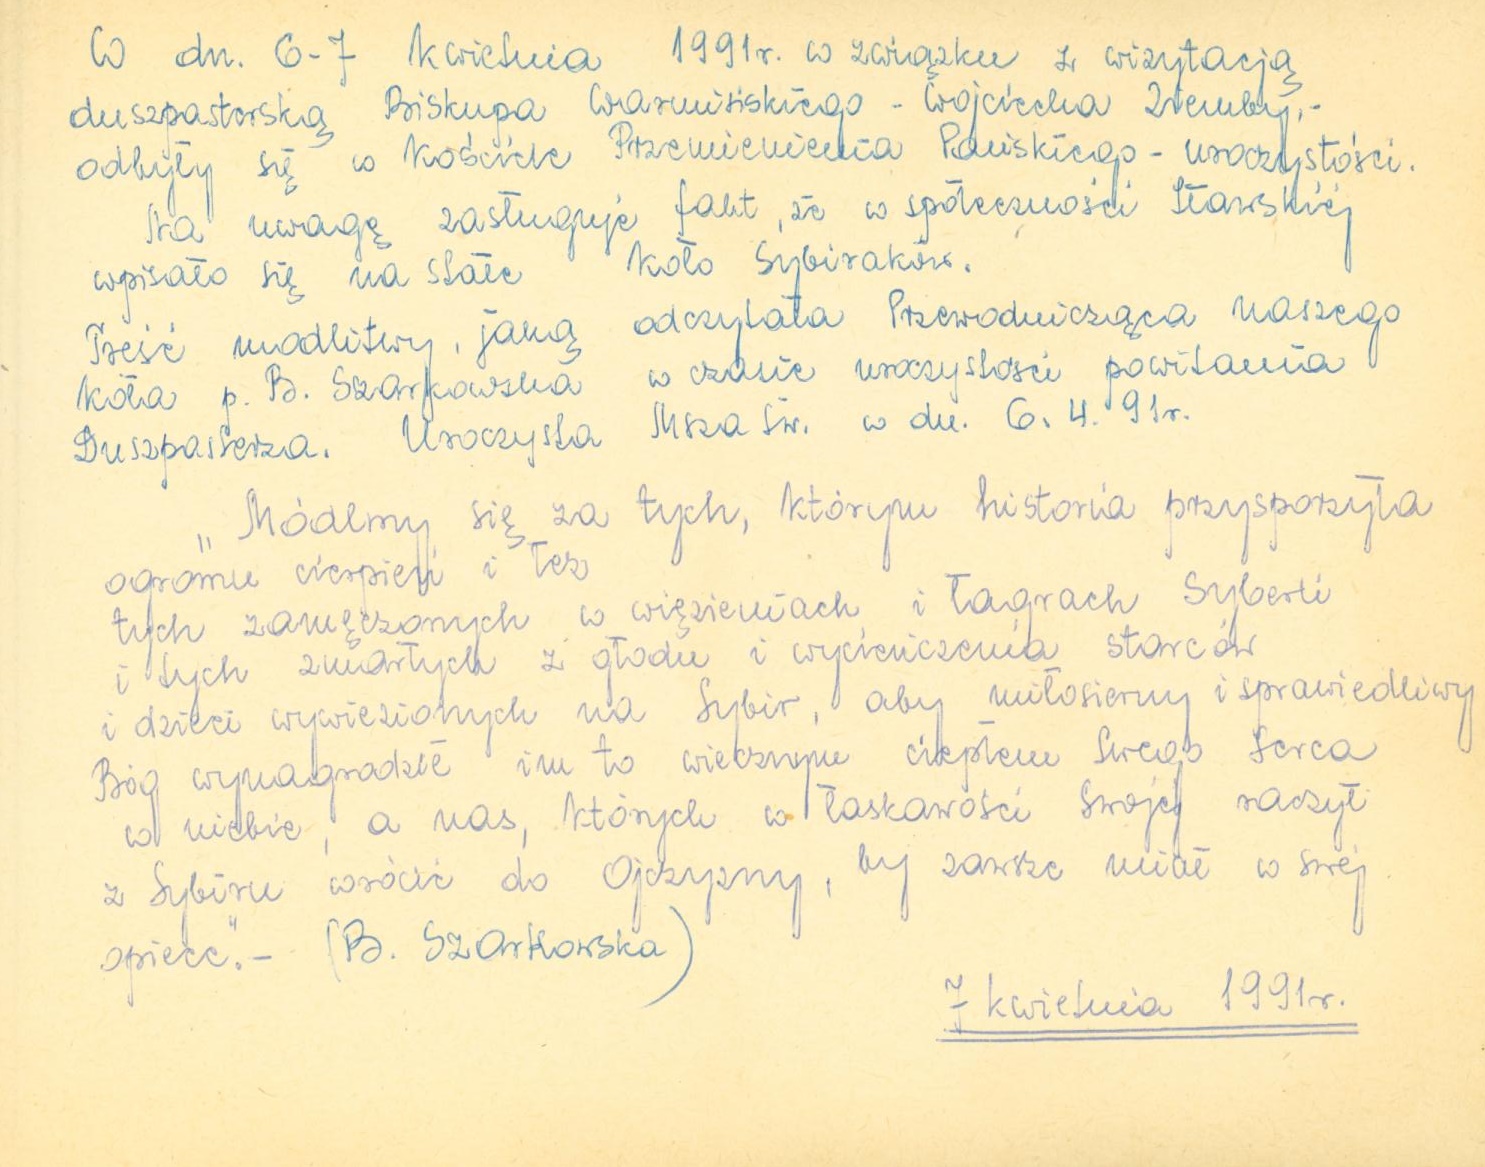 W dn. 6-7 kwietnia 1991r. w związku z wizytacją
duszpasterską Biskupa Warmińskiego - Wojciecha Ziemby,-
odbyły się w kościele Przemienienia Pańskiego - uroczystości.
Na uwagę zasługuje fakt, że w społeczności Iławskiej
wpisało się na stałe Koło Sybiraków.
Treść modlitwy, jaką odczytała Przewodnicząca naszego
koła p. B. Szarkowska w czasie uroczystości powitania
Duszpasterza. Uroczysta Msza Św. w dn. 6. 4. 91r.
„Módlmy się za tych, którym historia przysporzyła
ogromu cierpień i łez
tych zamęczonych w więzieniach i łagrach Syberii
i tych zmarłych z głodu i wycieńczenia starców
i dzieci wywiezionych na Sybir, aby miłosierny i sprawiedliwy
Bóg wynagrodził im to wiecznym ciepłem Swego Serca
w niebie, a nas, których w łaskawości Swojej raczył
z Sybiru wrócić do Ojczyzny, by zawsze miał w swej
opiece".- (B. Szarkowska)
7 kwietnia 1991r.